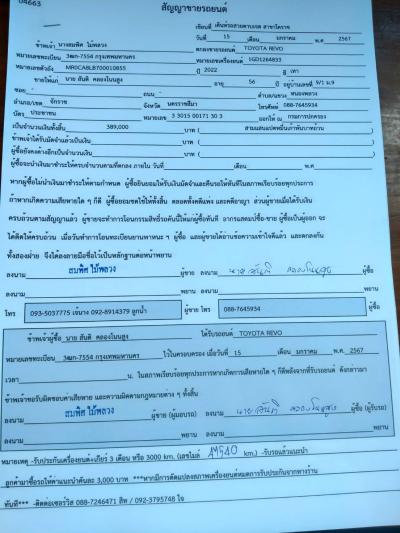 04663
สัญญาขายรถยนต์
เขียนที่ เต็นท์รถสวยตาบเจต สาขาโคราช
วันที่ 15 เดือน มกราคม พ.ศ. 2567
ข้าพเจ้า นางสมพิศ ไม้พลวง ตกลงขายรถยนต์ TOYOTA REVO
หมายเลขทะเบียน 3ฒก-7554 กรุงเทพมหานคร หมายเลขเครื่องยนต์ 1GD1264833
หมายเลขตัวถัง MR0CA8LB700010855 ปี 2022 สี เทา
ขายให้แก่ นาย สันติ คลองโนนสูง อายุ 56 ปี อยู่บ้านเลขที่ 9/1 ม.9
ซอย - ถนน - ตำบล/แขวง หนองพลวง
อำเภอ/เขต จักราช จังหวัด นครราชสีมา โทรศัพท์ 088-7645934
บัตร ประชาชน เลขที่ 3 3015 00171 30 3 ออกให้ ณ กรมการปกครอง
เป็นจำนวนเงินทั้งสิ้น 389,000 บาท ( สามแสนแปดหมื่นเก้าพันบาทถ้วน )
ข้าพเจ้าได้รับมัดจำแล้วเป็นเงิน บาท ( )
ผู้ซื้อยังคงค้างอีกเป็นจำนวนเงิน บาท ( )
ผู้ซื้อจะนำเงินมาชำระให้ครบจำนวนตามที่ตกลง ภายใน วันที่ เดือน พ.ศ.
หากผู้ซื้อไม่นำเงินมาชำระตามกำหนด ผู้ซื้อยินยอมให้ริบเงินมัดจำและคืนรถให้ทันทีในสภาพเรียบร้อยทุกประการ
ถ้าหากเกิดความเสียหายใด ๆ ก็ดี ผู้ซื้อยอมชดใช้ให้ทั้งสิ้น ตลอดทั้งคดีแพ่ง และคดีอาญา ส่วนผู้ขายเมื่อได้รับเงิน
ครบถ้วนตามสัญญาแล้ว ผู้ขายจะทำการโอนกรรมสิทธิ์รถคันนี้ให้ผู้ซื้อทันที อากรแสตมป์ซื้อ-ขาย ผู้ซื้อเป็นผู้ออก จะ
ได้ติดให้ครบถ้วน เมื่อวันทำการโอนทะเบียนยานพาหนะ ๆ ผู้ซื้อ และผู้ขายได้อ่านข้อความเข้าใจดีแล้ว และตกลงกัน
ทั้งสองฝ่าย จึงได้ลงลายมือชื่อไว้เป็นหลักฐานต่อหน้าพยาน
ลงนาม สมพิศ ไม้พลวง ผู้ขาย ลงนาม นายสันติ คลองโนนสูง ผู้ซื้อ
ลงนาม พยาน ลงนาม พยาน
โทร 093-5037775 เจ๊นาง 092-8914379 ลูกน้ำ ผู้ขาย โทร 088-7645934 ผู้ซื้อ
ข้าพเจ้าผู้ซื้อ นาย สันติ คลองโนนสูง ได้รับรถยนต์ TOYOTA REVO
หมายเลขทะเบียน 3ฒก-7554 กรุงเทพมหานคร ไว้ในครอบครอง เมื่อวันที่ 15 เดือน มกราคม พ.ศ. 2567
เวลา น. ในสภาพเรียบร้อยทุกประการหากเกิดการเสียหายใด ๆ ก็ดีหลังจากที่รับรถยนต์ ดังกล่าวมา
ข้าพเจ้าขอรับผิดชอบค่าเสียหาย และความผิดตามกฎหมายต่าง ๆ ทั้งสิ้น
ลงนาม สมพิศ ไม้พลวง ผู้ขาย (ผู้มอบรถ) ลงนาม นายสันติ คลองโนนสูง ผู้ซื้อ (ผู้รับรถ)
ลงนาม พยาน ลงนาม พยาน
หมายเหตุ -รับประกันเครื่องยนต์+เกียร์ 3 เดือน หรือ 3000 km. (เลขไมล์ km.) -รับรถแล้วแนะนำ
ลูกค้ามาซื้อรถให้ค่าแนะนำคันละ 3,000 บาท ***หากมีการดัดแปลงสภาพเครื่องยนต์หมดการรับประกันจากทางร้าน
ทันที*** -ติดต่อเซอร์วิส 088-7246471 สิท / 092-3795748 ใจ